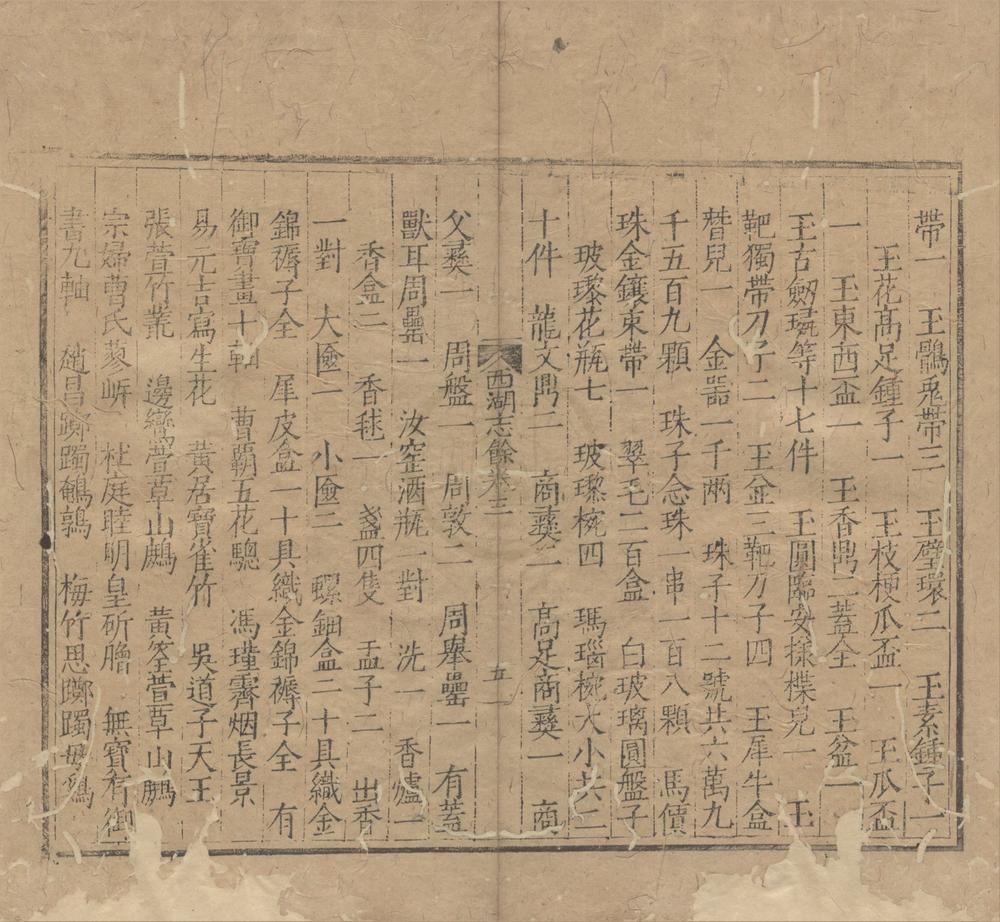 帶一　玉鶻兔帶三　玉璧環二　玉素鍾子一
玉花高足鍾子一　玉枝梗瓜盃一　玉瓜盃
一　玉東西盃一　玉香鼎二蓋全　玉盆一
玉古劒璏等十七件　玉圓臨安㨾楪兒一　玉
靶獨帶刀子二　玉並三靶刀子四　玉犀牛盒
替兒一　金器一千兩　珠子十二號共六萬九
千五百九顆　珠子念珠一串一百八顆　馬價
珠金鑲束帶一　翠毛二百盒　白玻璃圓盤子
玻瓈花瓶七　玻瓈椀四　瑪瑙椀大小共二
十件　龍文鼎二　商彝二　高足商彝一　商
西湖志餘卷三　五
父彝一　周盤一　周敦二　周舉罍一　有蓋
獸耳周罍一　汝窑酒瓶一對　洗一　香爐一
香盒二　香毬一　盞四隻　盂子二　出香
一對　大奩一　小奩二　螺鈿盒二十具織金
錦褥子全　犀皮盒一十具織金錦褥子全　有
御寶畫十軸　曹霸五花驄　馮瑾霽烟長景
易元吉寫生花　黃居寶雀竹　吳道子天王
張萱竹叢　邊鸞萱草山鷓　黃筌萱草山鷓
宗婦曹氏蓼岍　杜庭睦明皇斫膾　無寶有御
書九軸　趙昌躑躅鵪鶉　梅竹思躑躅母雞